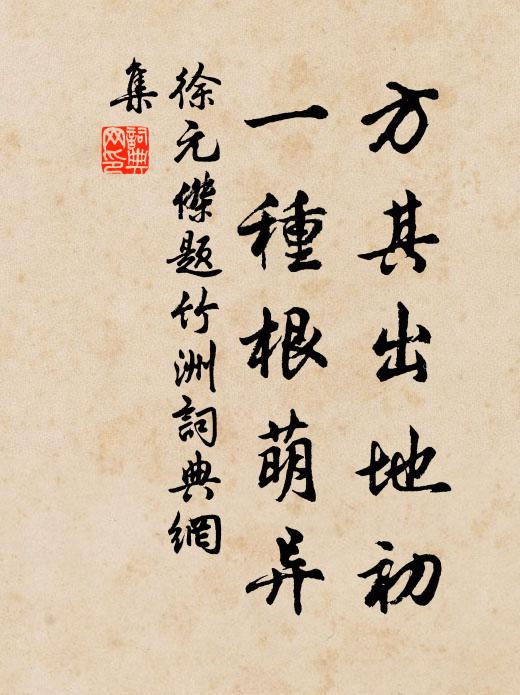 方其出地初
一種根萌异
徐元傑题竹洲詞典網
集
詞典网印